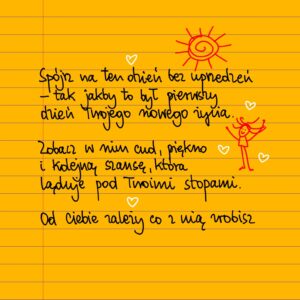 Spójrz na ten dzień bez uprzedzeń
– tak jakby to był pierwszy
dzień Twojego nowego życia.
Zobacz w nim cud, piękno
i kolejną szansę, która
ląduje pod Twoimi stopami.
Od Ciebie zależy co z nią zrobisz